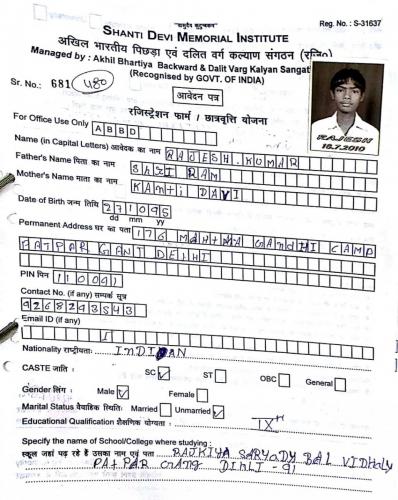 "वसुधैव कुटुम्बकम्"
Reg. No. : S-31637
SHANTI DEVI MEMORIAL INSTITUTE
अखिल भारतीय पिछड़ा एवं दलित वर्ग कल्याण संगठन (रजि०)
Managed by : Akhil Bhartiya Backward & Dalit Varg Kalyan Sangat
(Recognised by GOVT. OF INDIA)
Sr. No.: 681 480
आवेदन पत्र
रजिस्ट्रेशन फार्म / छात्रवृत्ति योजना
RAJESH
18.7.2010
For Office Use Only ABBD
Name (in Capital Letters) आवेदक का नाम RAJESH. KUMAR
Father's Name पिता का नाम ShRI RAM
Mother's Name माता का नाम KANti DAVI
Date of Birth जन्म तिथि 271095
dd mm yy
Permanent Address घर का पता 176 MAHTMA GANDHI CAMP
PATPAR GANJ DELHI
PIN पिन 110091
Contact No. (if any) सम्पर्क सूत्र
9268293543
Email ID (if any)
Nationality राष्ट्रीयताः INDIAN
CASTE जाति : SC ST OBC General
Gender लिंग : Male Female
Marital Status वैवाहिक स्थितिः Married Unmarried
Educational Qualification शैक्षणिक योग्यता : IXth
Specify the name of School/College where studying :
स्कूल जहां पढ़ रहे है उसका नाम एवं पता RAJKIYA SARVODY BAL VIDHALY
PATPAR GANG DIHLI - 91